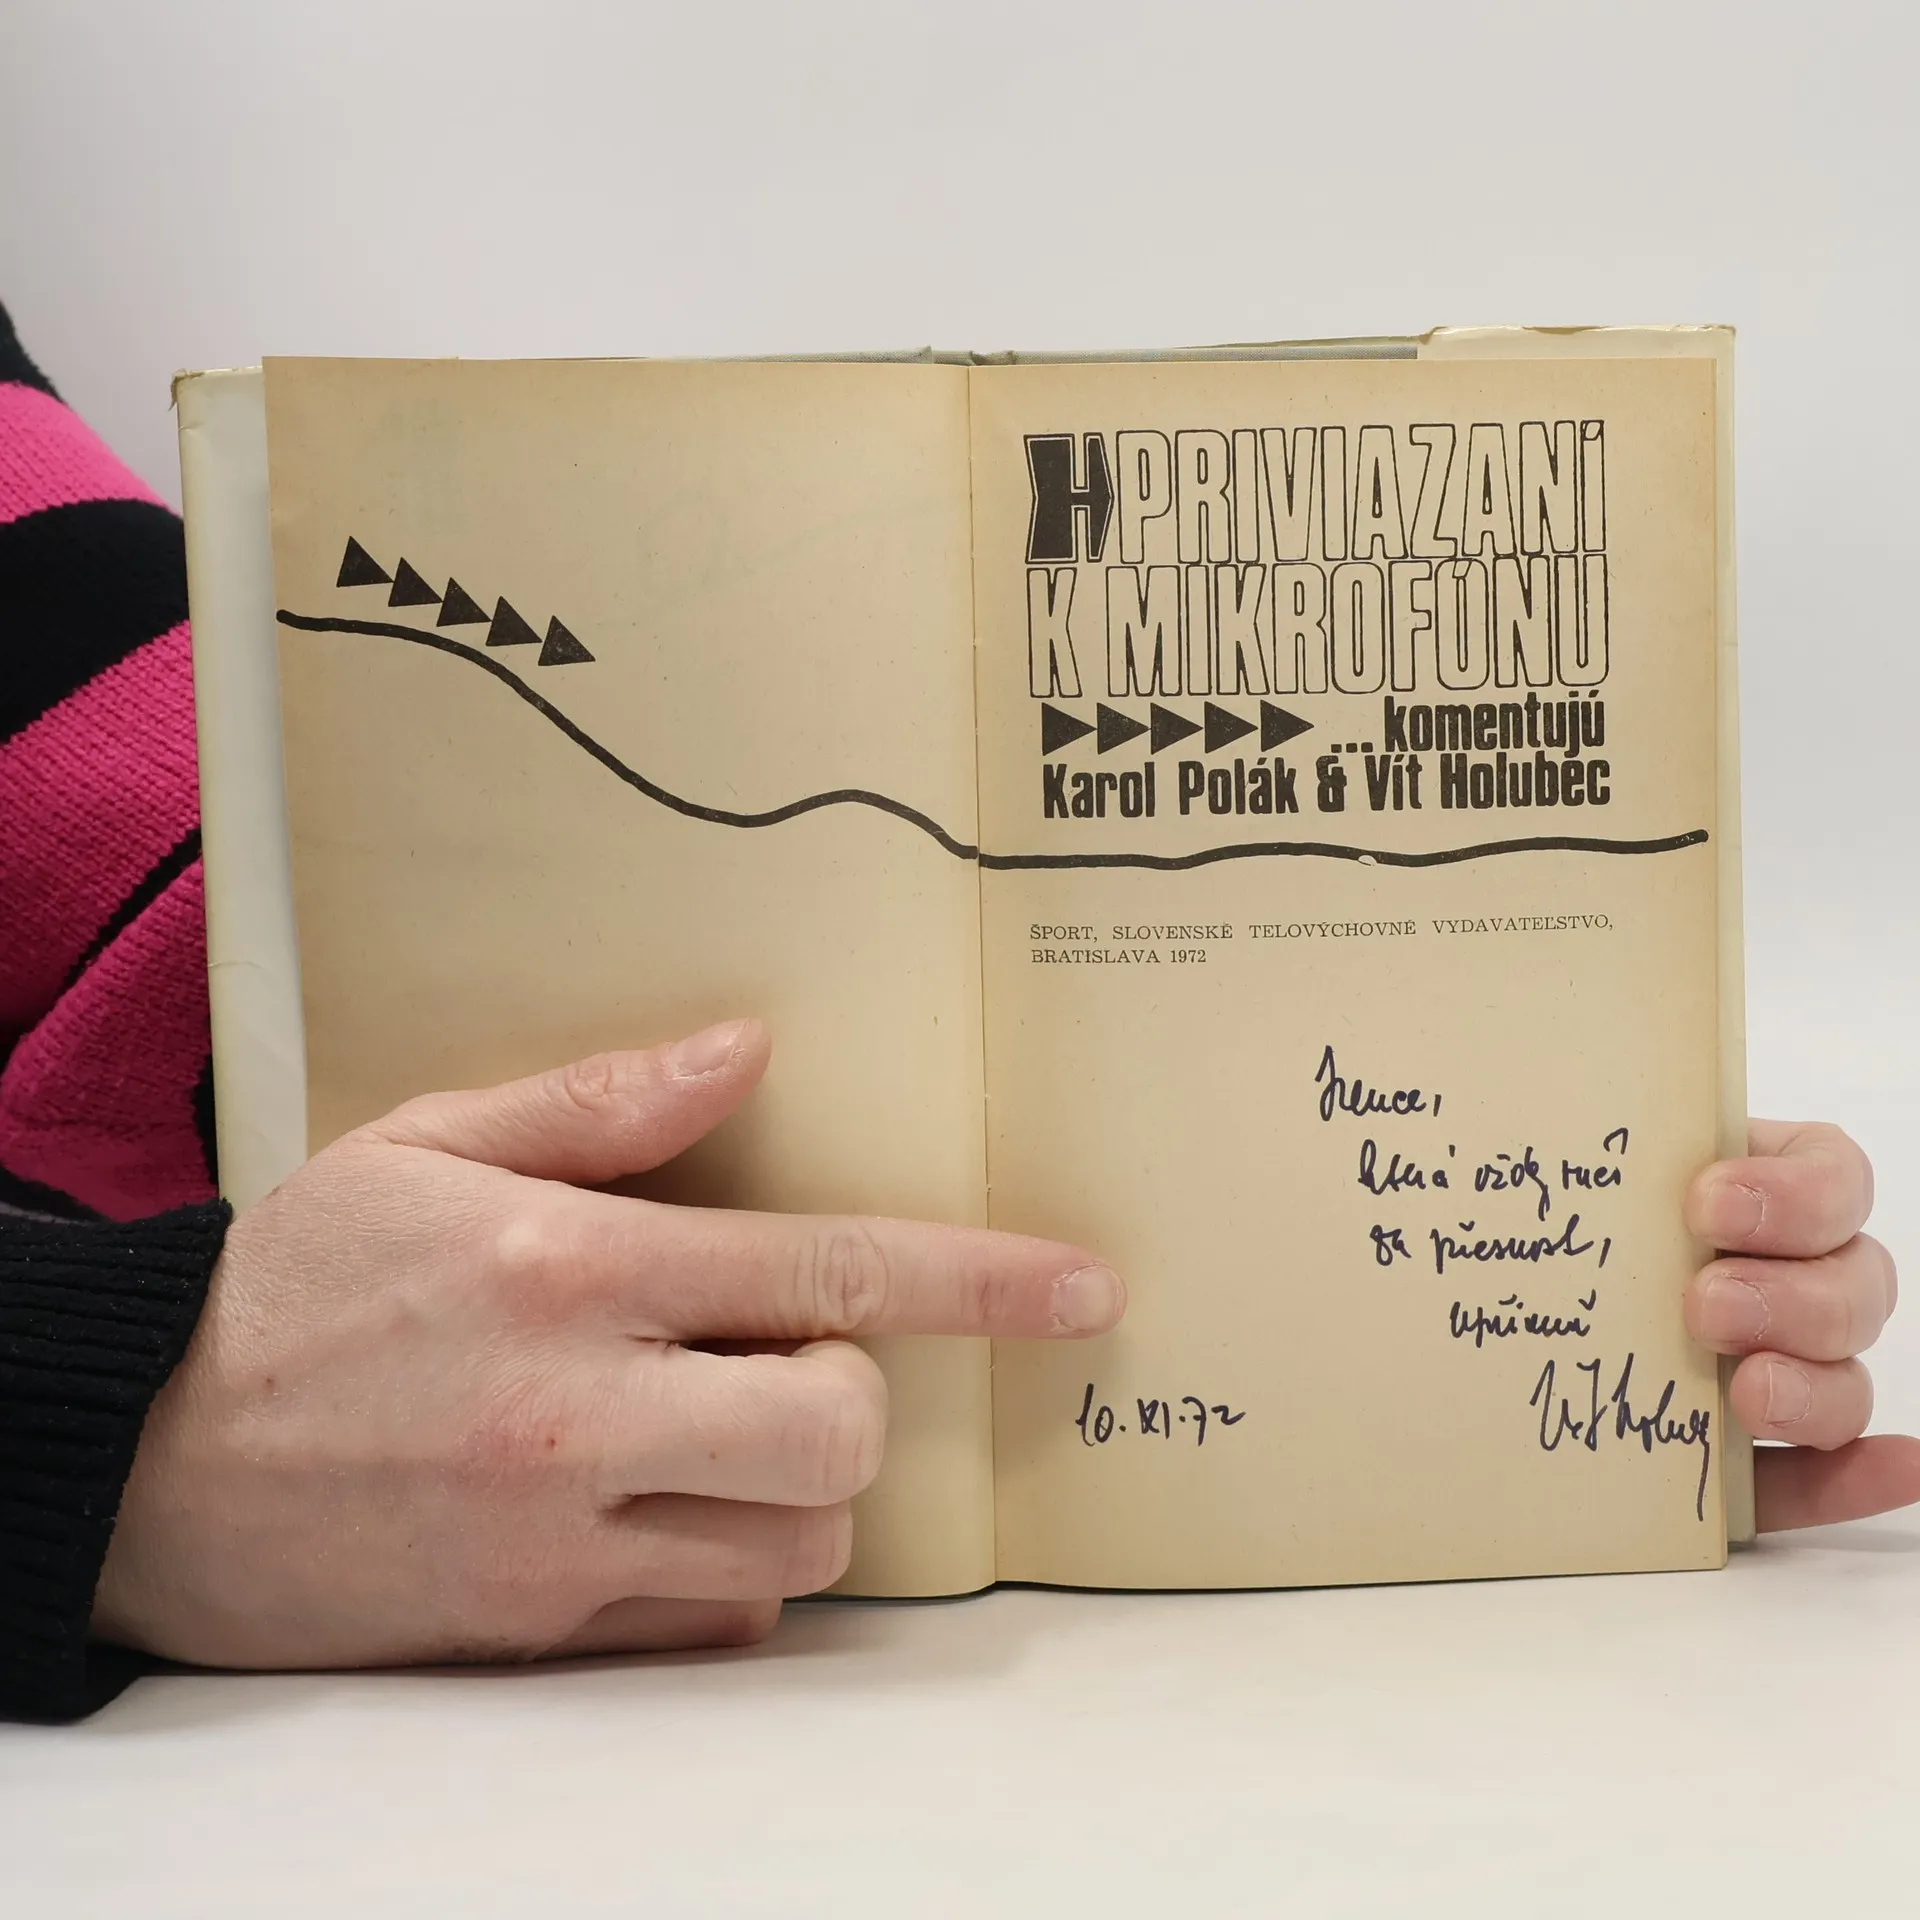 PRIVIAZANÍ
K MIKROFÓNU
... komentujú
Karol Polák & Vít Holubec
ŠPORT, SLOVENSKÉ TELOVÝCHOVNÉ VYDAVATEĽSTVO,
BRATISLAVA 1972
Irence,
která vždy ručí
za přesnost,
upřímně
10. XI. 72
Vít Holubec